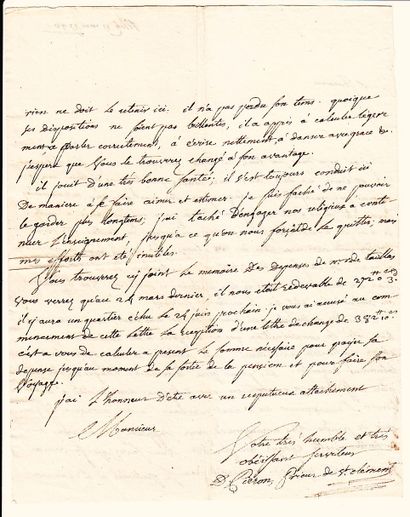 rien ne doit le retenir ici. il n'a pas perdu son tems. quoique
ses dispositions ne soient pas brillantes, il a appris à calculer légere
ment, à parler correctement, à écrire nettement, à danser avec grace &c.
j'espere que vous le trouverez changé à son avantage.
il jouit d'une très bonne santé; il s'est toujours conduit ici
De maniere à se faire aimer et estimer. je suis faché de ne pouvoir
le garder plus longtems; j'ai taché d'engager nos religieux a conti
nuer l'enseignement, jusqu'a ce qu'on nous forçat de le quitter; mais
mes efforts ont été inutiles.
Vous trouverez cy joint le memoire des depenses de mr de
vous verrez qu'au 24 mars dernier, il nous étoit redevable de 272tt 3s
il y aura un quartier échu le 24 juin prochain. je vous ai accusé au com
mencement de cette lettre la reception d'une lettre de change de 332tt
c'est a vous de calculer a present la somme necessaire pour payer sa
depense jusqu'au moment de sa sortie de la pension et pour faire son
voyage.
j'ai l'honneur d'etre avec un respectueux attachement
Monsieur
Votre très humble et très
obéissant serviteur
D. Pieron, Prieur de st clément